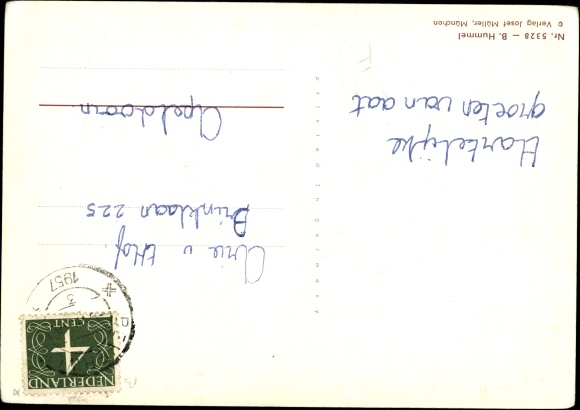 Nr. 5328 – B. Hummel
© Verlag Josef Müller, München
Hartelijke
groeten van aat
printed in germany
NEDERLAND
4
CENT
3
1957
Arie v 't Hof.
Brinklaan 225
Apeldoorn